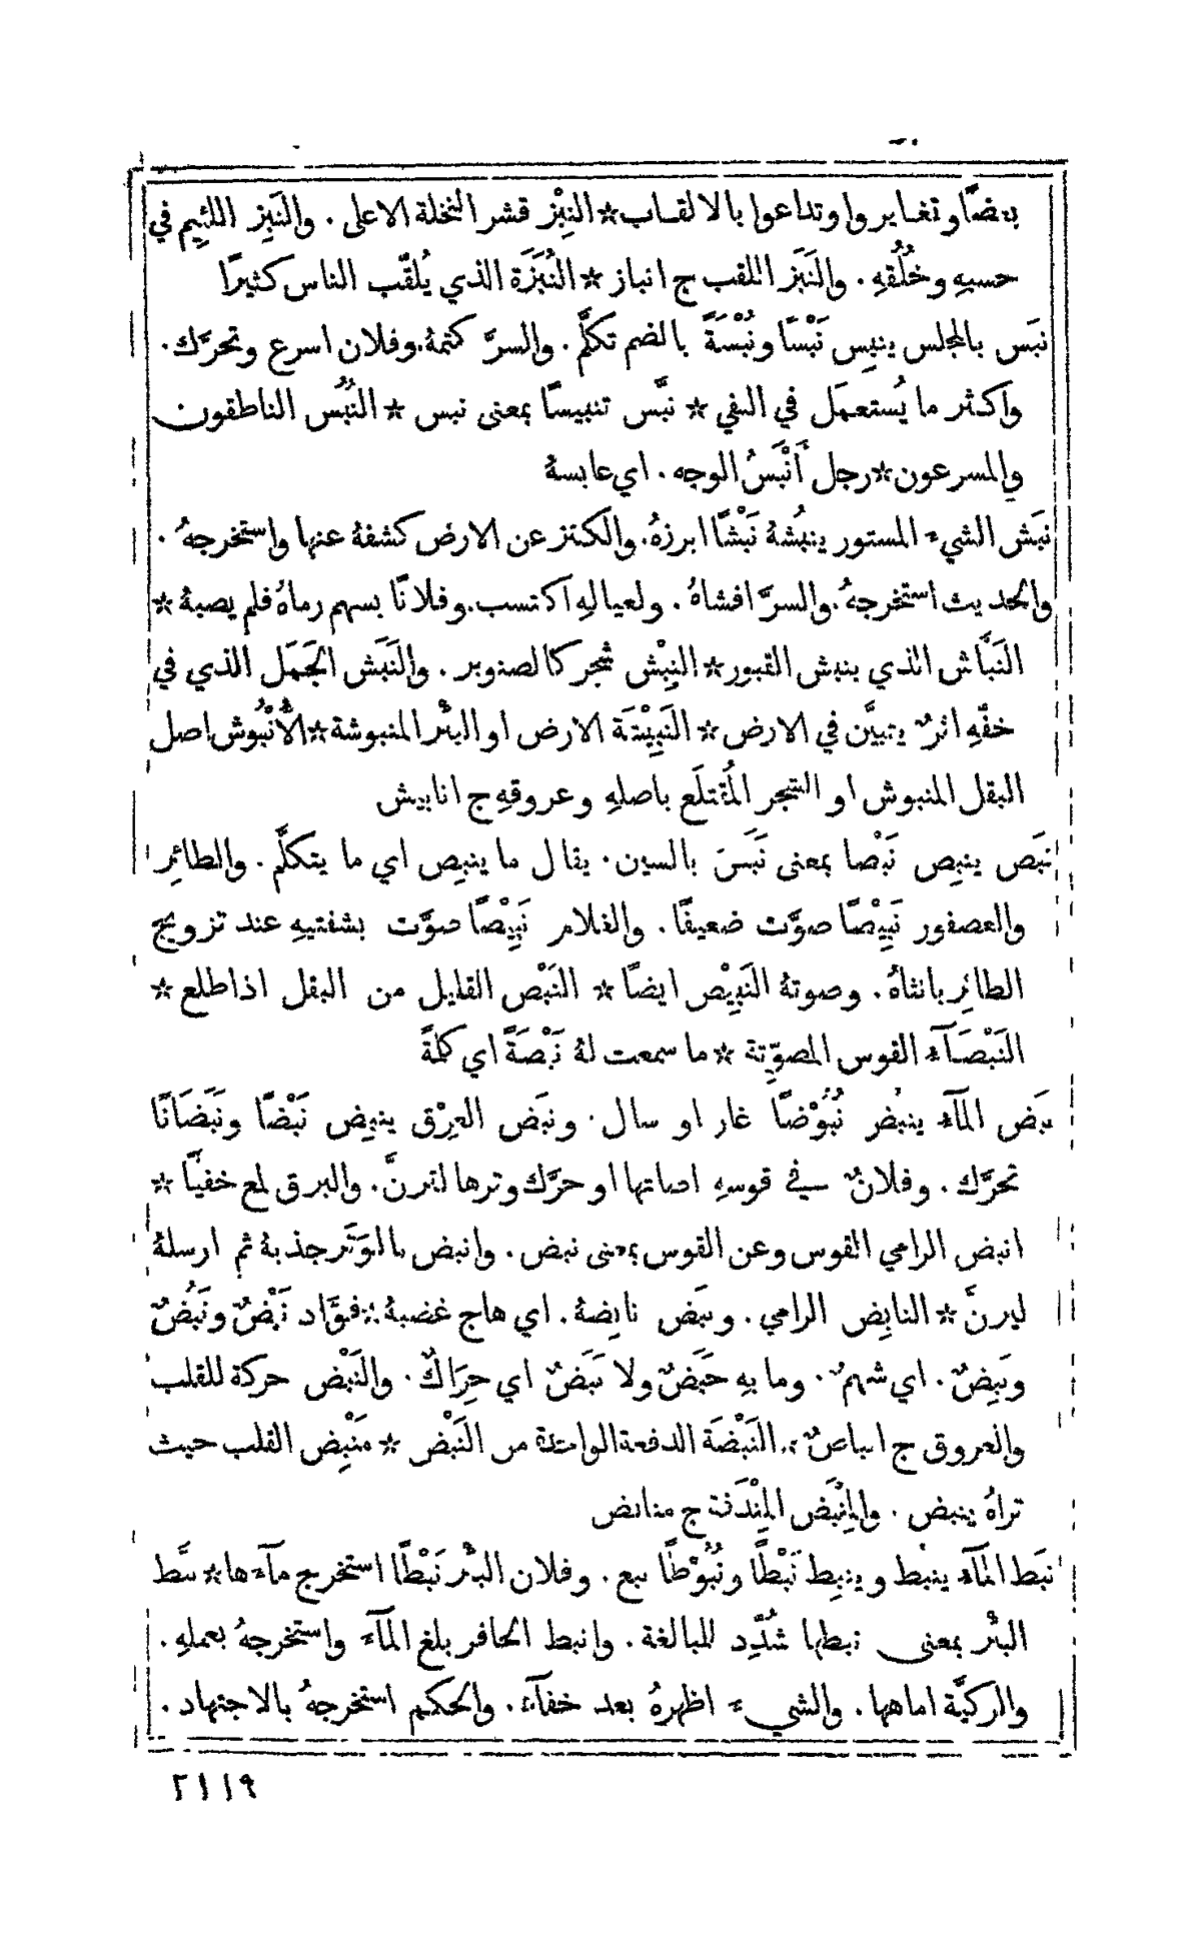 بعضًا وتغايروا وتداعوا بالالقاب * النِبْز قشر النخلة الاعلى . والنَبِز اللئيم في
حسبهِ وخُلُقهِ . والنَبَز اللقب ج انباز * النُبَزَة الذي يُلقّب الناس كثيرًا
نبَس بالمجلس ينبِس نَبْسًا ونُبْسَةً بالضم تكلَّم . والسرَّ كتمهُ . وفلان اسرع وتحرَّك .
واكثر ما يُستعمَل في النفي * نبَّس تنبيسًا بمعنى نبس * النُبُس الناطقون
والمسرعون * رجل أَنْبَسُ الوجه . اي عابسهُ
نبَش الشيء المستور ينبُشهُ نَبْشًا ابرزهُ . والكنز عن الارض كشفهُ عنها واستخرجهُ .
والحديث استخرجهُ . والسرَّ افشاهُ . ولعيالهِ اكتسب . وفلانًا بسهم رماهُ فلم يصبهُ *
النَبَّاش الذي ينبش القبور * النِبْش شجر كالصنوبر . والنَبَش الجَمَل الذي في
خفّهِ اثرٌ يتبيَّن في الارض * النَبِيْثَة الارض او البئر المنبوشة * الأُنْبُوش اصل
البقل المنبوش او الشجر المُقتلَع باصلهِ وعروقهِ ج انابيش
نبَص ينبِص نَبْصا بمعنى نَبَسَ بالسين . يقال ما ينبِص اي ما يتكلَّم . والطائر
والعصفور نَبِيْصًا صوَّت ضعيفًا . والغلام نَبِيْصًا صوَّت بشفتيهِ عند تزويج
الطائر بانثاهُ . وصوتهُ النَبِيْص ايضًا * النَبْص القليل من البقل اذا طلع *
النَبْصَآء القوس المصوِّتة * ما سمعت لهُ نَبْصَةً اي كلمةً
نبَض المآء ينبُض نُبُوْضًا غار او سال . ونبَض العِرْق ينبِض نَبْضًا ونَبَضَانًا
تحرَّك . وفلانٌ في قوسهِ اصاتها او حرَّك وترها لترنَّ . والبرق لمع خفيًّا *
انبض الرامي القوس وعن القوس بمعنى نبض . وانبض بالوَتَر جذبهُ ثم ارسلهُ
ليرنَّ * النابِض الرامي . ونبَض نابضهُ . اي هاج غضبهُ * فؤَاد نَبْضٌ ونَبُضٌ
ونَبِضٌ . اي شهمٌ . وما بهِ حَبَضٌ ولا نَبَضٌ اي حِرَاكٌ . والنَبْض حركة للقلب
والعروق ج انباضٌ * النَبْضَة الدفعة الواحدة من النَبْض * مَنْبِض القلب حيث
تراهُ ينبض . والمِنْبَض المِنْدَفة ج منابض
نبَط المآء ينبُط وينبِط نَبْطًا ونُبُوْطًا نبع . وفلان البئر نَبْطًا استخرج مآءها * نبَّط
البئر بمعنى نبطها شُدِّد للمبالغة . وانبط الحافر بلغ المآء واستخرجهُ بعملهِ .
والركيَّة اماهها . والشيء اظهرهُ بعد خفآء . والحكم استخرجهُ بالاجتهاد .
٢١١٩